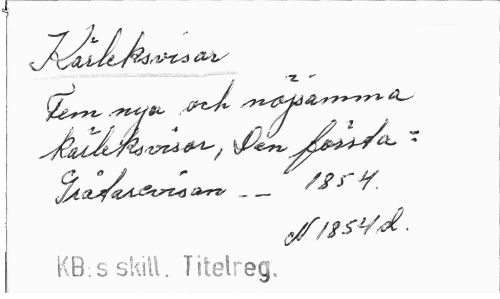 Kärleksvisor
Fem nya och nöjsamma
kärleksvisor, Den första =
Grådarevisan -- 1854.
N 1854 d.
KB:s skill. Titelreg.